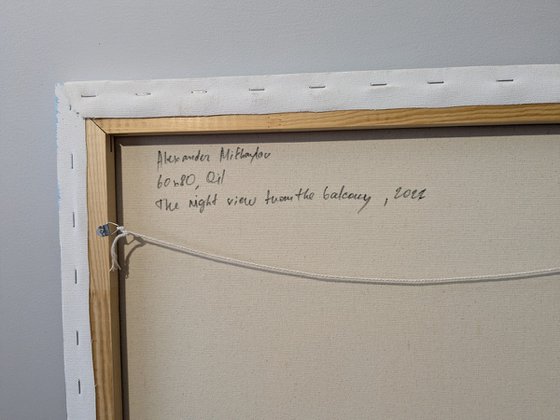 Alexander Mikhaylov
60x80, Oil
The night view from the balcony, 2021